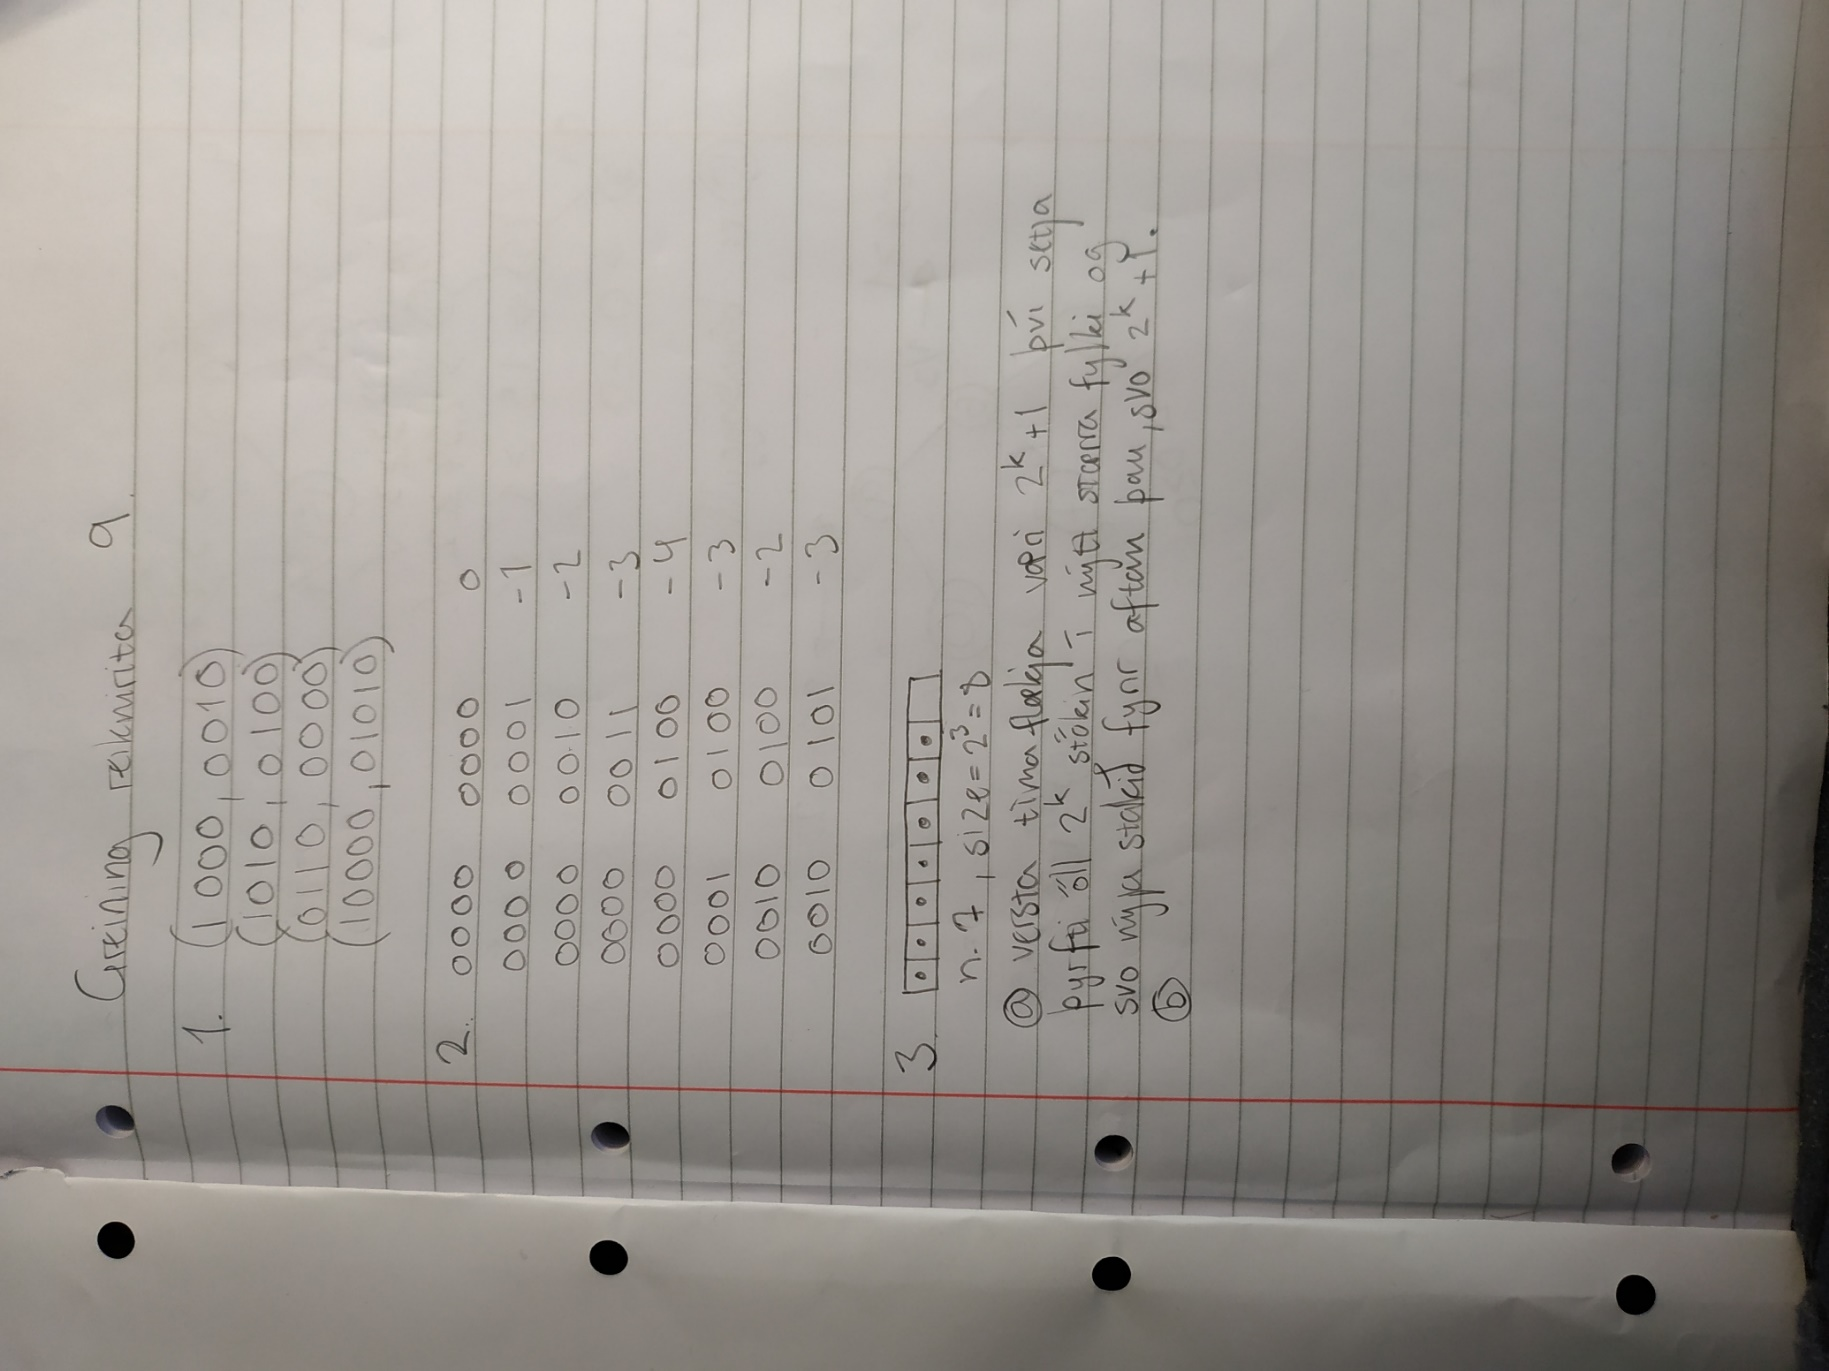 Greining reiknirita 9
1. (1000, 0010)
(1010, 0100)
(0110, 0000)
(10000, 01010)
2. 0000 0000 0
0000 0001 -1
0000 0010 -2
0000 0011 -3
0000 0100 -4
0001 0100 -3
0010 0100 -2
0010 0101 -3
3.
n. 7, size = 2³ = 8
(a) versta tímaflækja væri 2^k + 1 því setja
þyrfti öll 2^k stökin í nýtt stærra fylki og
svo nýja stakið fyrir aftan þau, svo 2^k + 1.
(b)